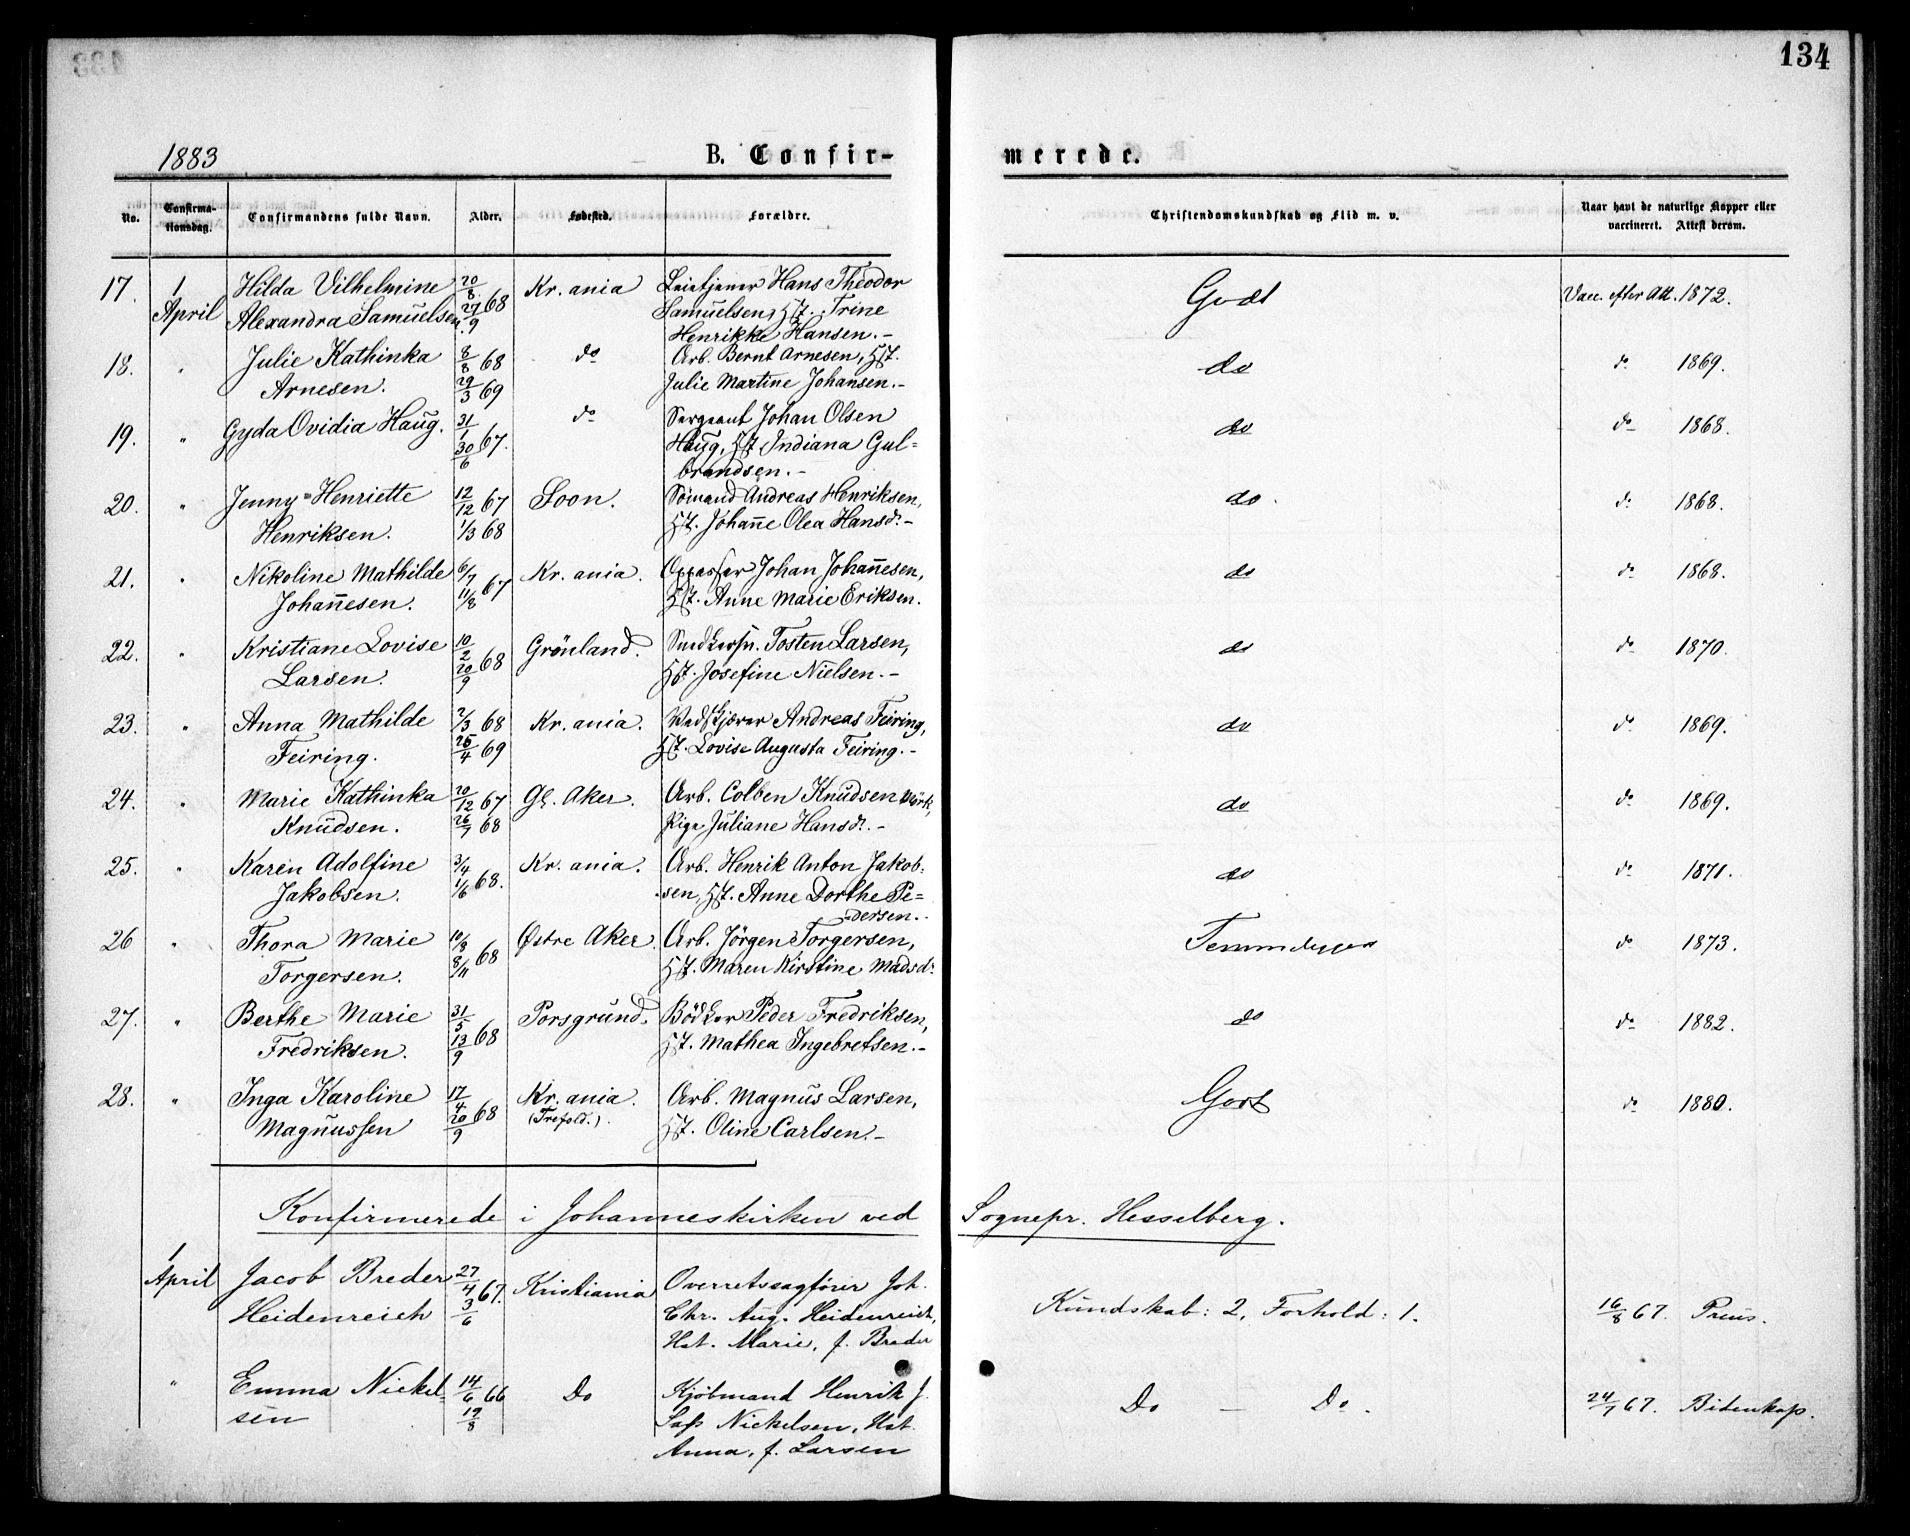 134
1883 B. Confir- merede.
No. Confirma- Confirmandens fulde Navn. Alder. Fødested. Forældre. Christendomskundskab og Flid m. v. Naar havt de naturlige Kopper eller
tionsdag. vaccineret. Attest derom.
17. 1 Hilda Vilhelmine 20/8 68 Kr.ania Leietjener Hans Theodor Godt Vacc. efter Att. 1872.
April Alexandra Samuelsen. 29/9 Samuelsen, Hst. Trine
Henrikke Hansen.-
18. " Julie Kathinka 8/8 68 do Arb. Bernt Arnesen, Hst. do do 1869.
Arnesen. 29/3 69 Julie Martine Johansen.-
19. " Gyda Ovidia Haug. 31/1 67. do Sergeant Johan Olsen do do 1868.
30/6 Haug, Hst. Indiana Gul=
brandsen.-
20. " Jenny=Henriette 12/12 67 Soon. Sømand Andreas Henriksen, do. do 1868.
Henriksen. 1/3 68 Hst. Johanne Olea Hansdr.-
21. " Nikoline Mathilde 6/7 67 Kr.ania. Oppasser Johan Johannesen, do do 1868.
Johannesen. 11/8 Hst. Anne Marie Eriksen.
22. " Kristiane Lovise 10/2 68 Grønland. Snedkersv. Tosten Larsen, do do 1870.
Larsen. 20/9 Hst. Josefine Nielsen.-
23. " Anna Mathilde 2/3 68 Kr.ania. Vedskjærer Andreas Feiring, do do 1869.
Feiring. 25/4 69 Hst. Lovise Augusta Feiring.-
24. " Marie Kathinka 20/12 67 Gl. Aker. Arb. Colben Knudsen Mörk, do do 1869.
Knudsen. 26/7 68 Pige Juliane Hansdr.-
25. " Karen Adolfine 3/4 68. Kr.ania. Arb. Henrik Anton Jakob- do do 1871.
Jakobsen. 1/6 sen, Hst. Anne Dorthe Pe=
dersen.
26 " Thora Marie 10/8 68 Østre Aker. Arb. Jörgen Torgersen, do 1873.
Torgersen. 8/11 Hst. Maren Kirstine Madsdr.
27. " Berthe Marie 31/5 68 Porsgrund. Bödker Peder Fredriksen, do do 1882.
Fredriksen. 13/9 Hst. Mathea Ingebretsen.-
28. " Inga Karoline 17/4 68 Kr.ania. Arb. Magnus Larsen, Godt do 1880.
Magnussen 20/9 (Trefold.). Hst. Oline Carlsen.-
Konfirmerede i Johanneskirken ved Sognepr. Hesselberg.
1
April Jacob Breder 27/4 67. Kristiania Overretssagfører Joh. Kundskab: 2, Forhold: 1. 16/8 67. Preus.
Heidenreich 3/6 Chr. Aug. Heidenreich,
Hst. Marie, f. Breder
" Emma Nickel- 14/6 66 Do Kjøbmand Henrik J. Do — Do. 24/7 67. Bidenkap.
sen 19/8 Sass Nickelsen, Hst.
Anna, f. Larsen